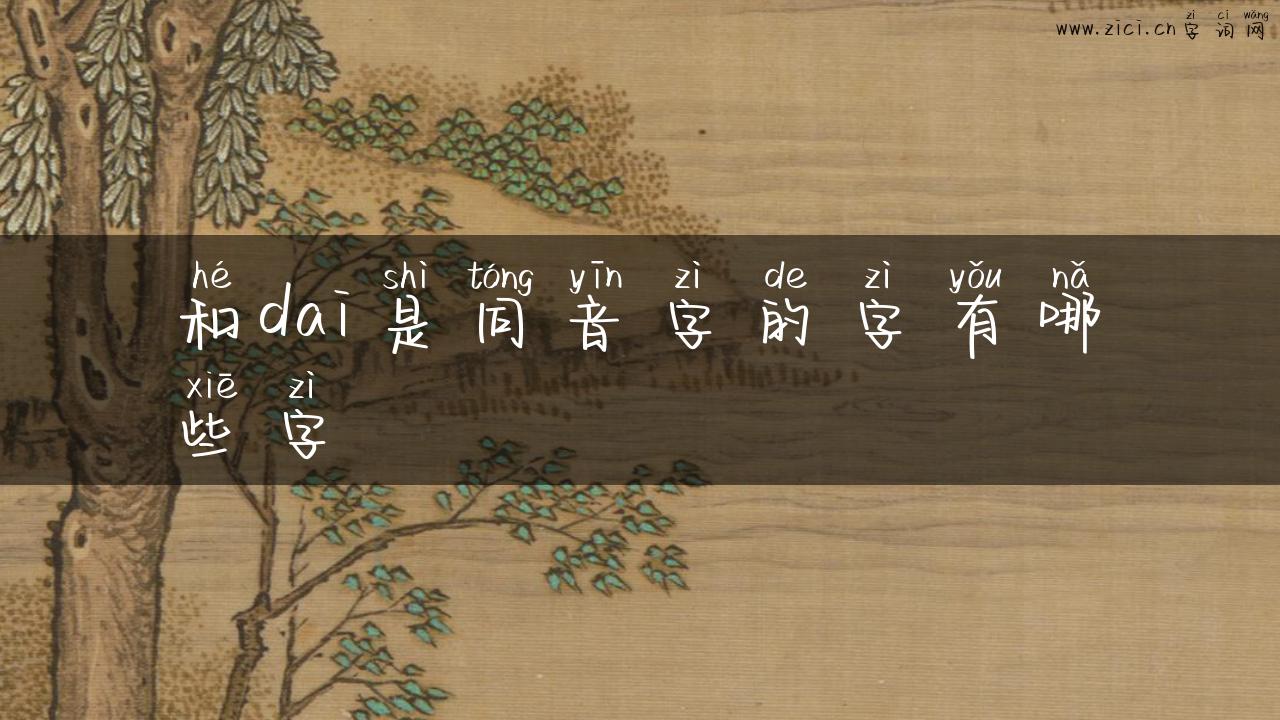 zì cí wǎng
www.zici.cn 字词网
hé shì tóng yīn zì de zì yǒu nǎ
和dai是同音字的字有哪
xiē zì
些字